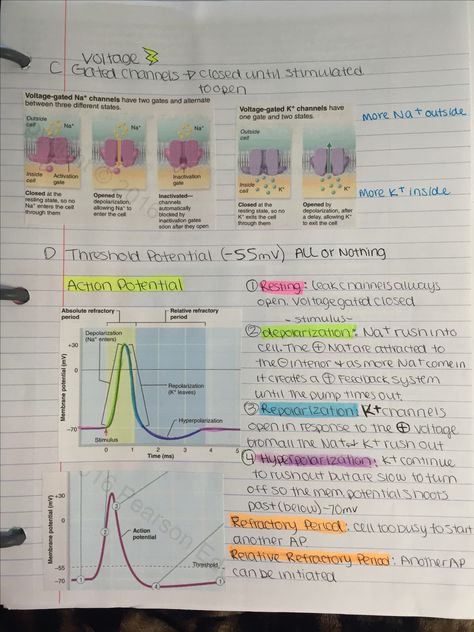 Voltage
C Gated channels → closed until stimulated
to open
Voltage-gated Na⁺ channels have two gates and alternate
between three different states.
Outside
cell
Na⁺
Na⁺
Na⁺
Inside
cell
Activation
gate
Inactivation
gate
Closed at the
resting state, so no
Na⁺ enters the cell
through them
Opened by
depolarization,
allowing Na⁺ to
enter the cell
Inactivated—
channels
automatically
blocked by
inactivation gates
soon after they open
Voltage-gated K⁺ channels have
one gate and two states.
Outside
cell
Inside
cell
K⁺
K⁺
Closed at the
resting state, so no
K⁺ exits the cell
through them
Opened by
depolarization, after
a delay, allowing K⁺
to exit the cell
more Na+ outside
more K+ inside
D Threshold Potential (-55mv) ALL or Nothing
Action Potential
Absolute refractory
period
Relative refractory
period
Depolarization
(Na⁺ enters)
Repolarization
(K⁺ leaves)
Hyperpolarization
Stimulus
Membrane potential (mV)
+30
0
-70
0
1
2
3
4
5
Time (ms)
① Resting: leak channels always
open. Voltage gated closed
- stimulus -
② depolarization: Na+ rush into
cell. The ⊕ Na+ are attracted to
the ⊖ interior & as more Na+ come in
it creates a ⊕ Feedback system
until the pump times out.
③ Repolarization: K+ channels
open in response to the ⊕ voltage
from all the Na+ & K+ rush out
④ Hyperpolarization: K+ continue
to rush out but are slow to turn
off so the mem. potential shoots
past (below) -70mv
Refractory Period: cell too busy to start
another AP
Relative Refractory Period: Another AP
can be initiated
Membrane potential (mV)
+30
0
-55
-70
Action
potential
Threshold
1
2
3
4
1